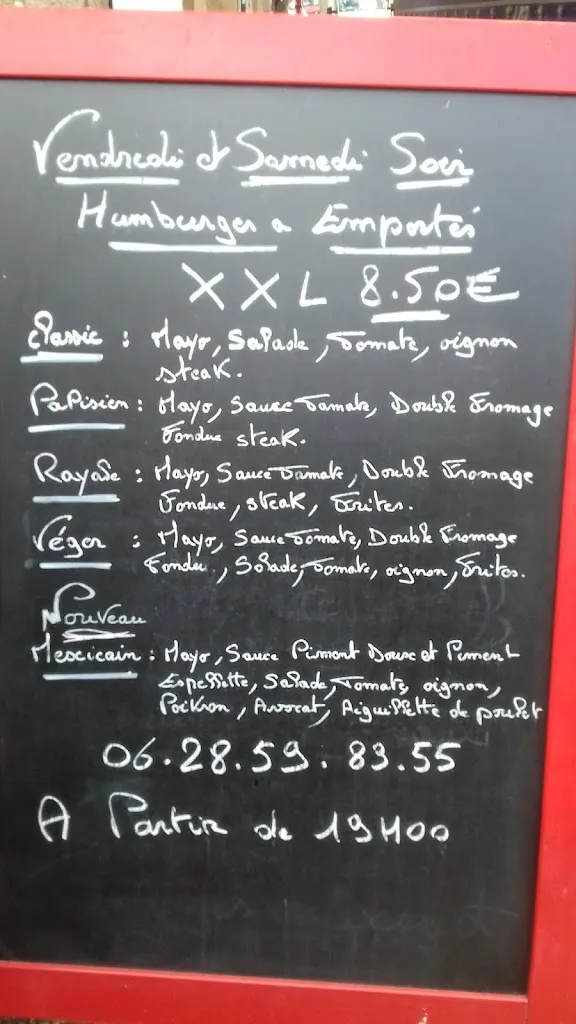 Vendredi et Samedi Soir
Humburger a Emportés
XXL 8.50€
Classic : Mayo, Salade, Tomate, oignon
steak.
Parisien : Mayo, Sauce Tomate, Double Fromage
Fondue steak.
Royale : Mayo, Sauce Tomate, Double Fromage
Fondue, steak, Frites.
Véger : Mayo, Sauce Tomate, Double Fromage
Fondu, Salade, Tomate, oignon, Frites.
Nouveau
Mexicain : Mayo, Sauce Piment Doux et Piment
Espellette, Salade, Tomate, oignon,
Poivron, Avocat, Aiguillette de poulet
06.28.59.83.55
A Partir de 19H00